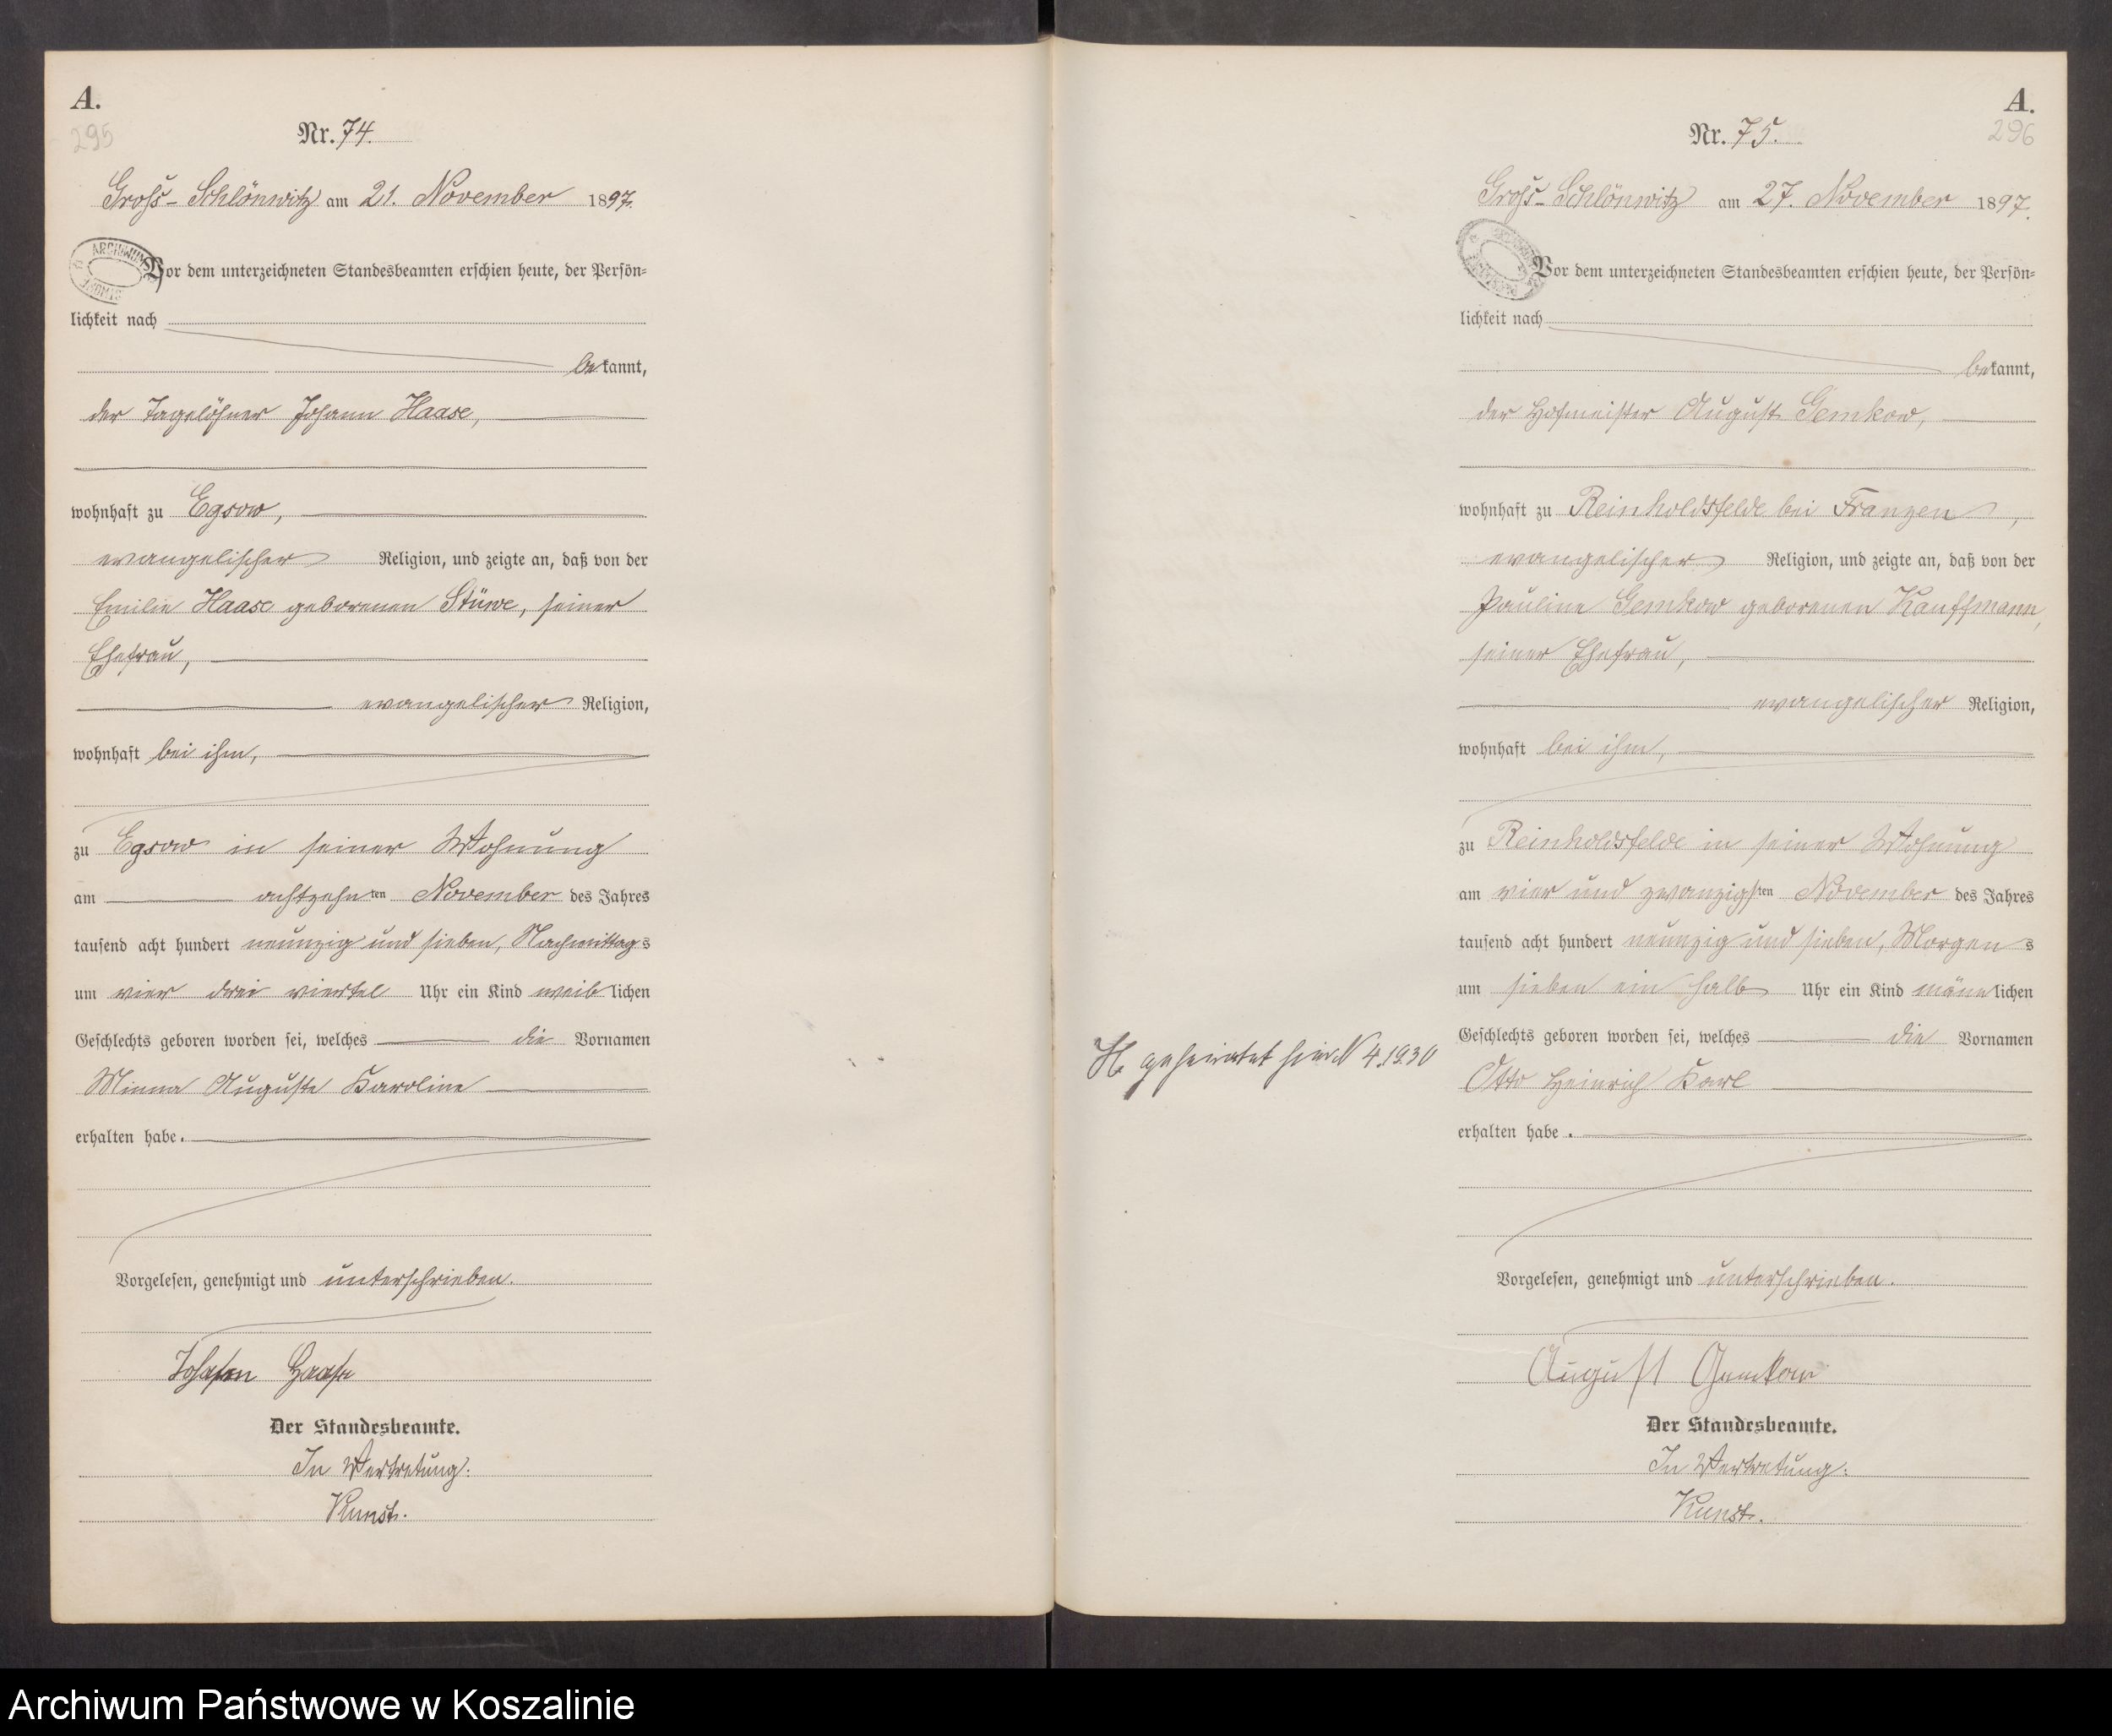 A.
295
Nr. 74.
Groß-Schlönwitz am 21. November 1897.
Vor dem unterzeichneten Standesbeamten erschien heute, der Persön-
lichkeit nach
bekannt,
der Tagelöhner Johann Haase,
wohnhaft zu Egsow,
evangelischer Religion, und zeigte an, daß von der
Emilie Haase geborenen Stüwe, seiner
Ehefrau,
evangelischer Religion,
wohnhaft bei ihm,
zu Egsow in seiner Wohnung
am achtzehnten November des Jahres
tausend acht hundert neunzig und sieben, Nachmittags
um vier drei viertel Uhr ein Kind weiblichen
Geschlechts geboren worden sei, welches die Vornamen
Minna Auguste Karoline
erhalten habe.
Vorgelesen, genehmigt und unterschrieben.
Johann Haase
Der Standesbeamte.
In Vertretung:
Kunst.
A.
296
Nr. 75.
Groß-Schlönwitz am 27. November 1897.
Vor dem unterzeichneten Standesbeamten erschien heute, der Persön-
lichkeit nach
bekannt,
der Hofmeister August Gemkow,
wohnhaft zu Reinholdsfelde bei Franzen,
evangelischer Religion, und zeigte an, daß von der
Pauline Gemkow geborenen Kauffmann,
seiner Ehefrau,
evangelischer Religion,
wohnhaft bei ihm,
zu Reinholdsfelde in seiner Wohnung
am vier und zwanzigsten November des Jahres
tausend acht hundert neunzig und sieben, Morgens
um sieben ein halb Uhr ein Kind männlichen
Geschlechts geboren worden sei, welches die Vornamen
geheiratet hier N 4.1930
Otto Heinrich Karl
erhalten habe.
Vorgelesen, genehmigt und unterschrieben.
August Gemkow
Der Standesbeamte.
In Vertretung:
Kunst.
Archiwum Państwowe w Koszalinie